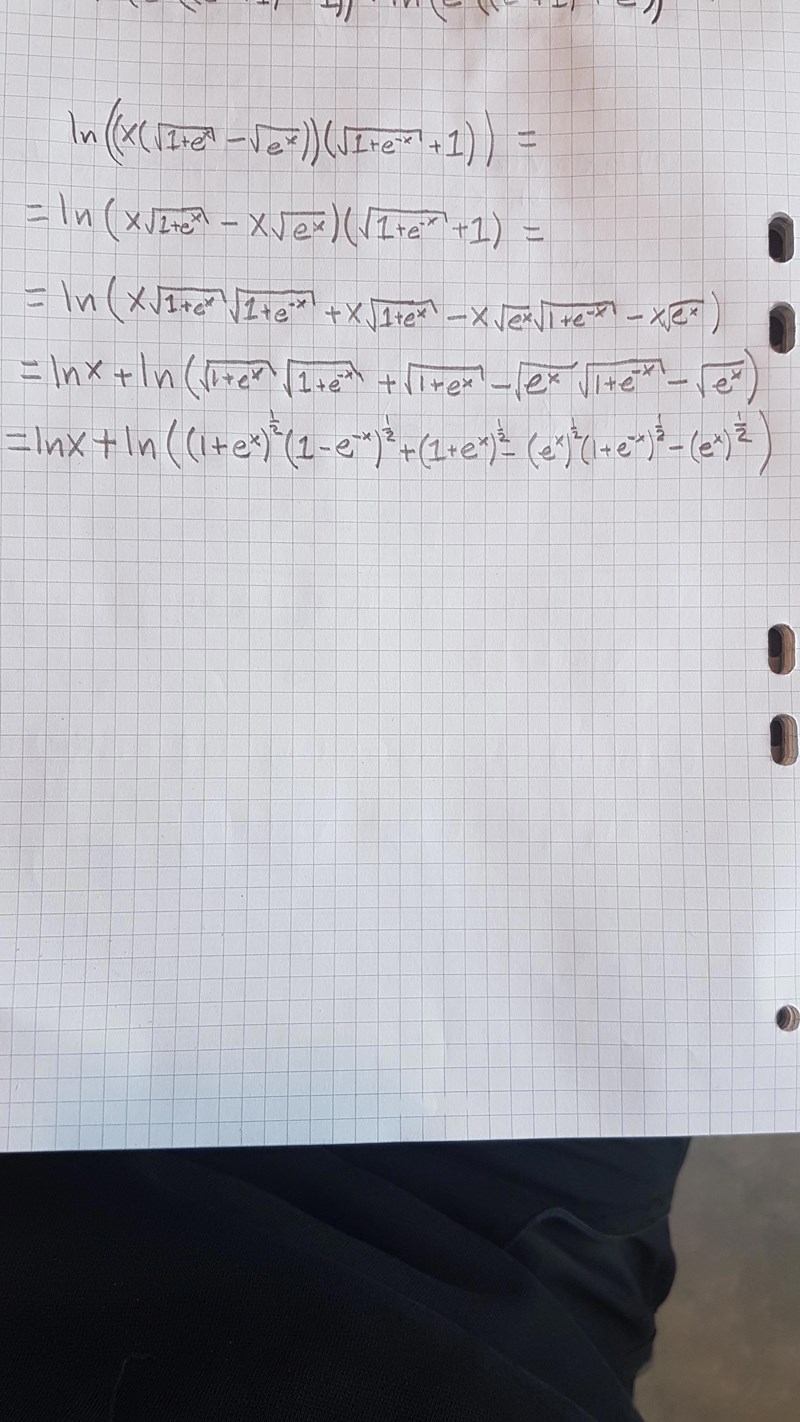 ln((x(√(1+eˣ) − √(eˣ)))(√(1+e⁻ˣ) + 1)) =
= ln(x√(1+eˣ) − x√(eˣ))(√(1+e⁻ˣ) + 1) =
= ln(x√(1+eˣ)√(1+e⁻ˣ) + x√(1+eˣ) − x√(eˣ)√(1+e⁻ˣ) − x√(eˣ))
= lnx + ln(√(1+eˣ)√(1+e⁻ˣ) + √(1+eˣ) − √(eˣ)√(1+e⁻ˣ) − √(eˣ))
= lnx + ln((1+eˣ)^½(1−e⁻ˣ)^½ + (1+eˣ)^½ − (eˣ)^½(1+e⁻ˣ)^½ − (eˣ)^½)